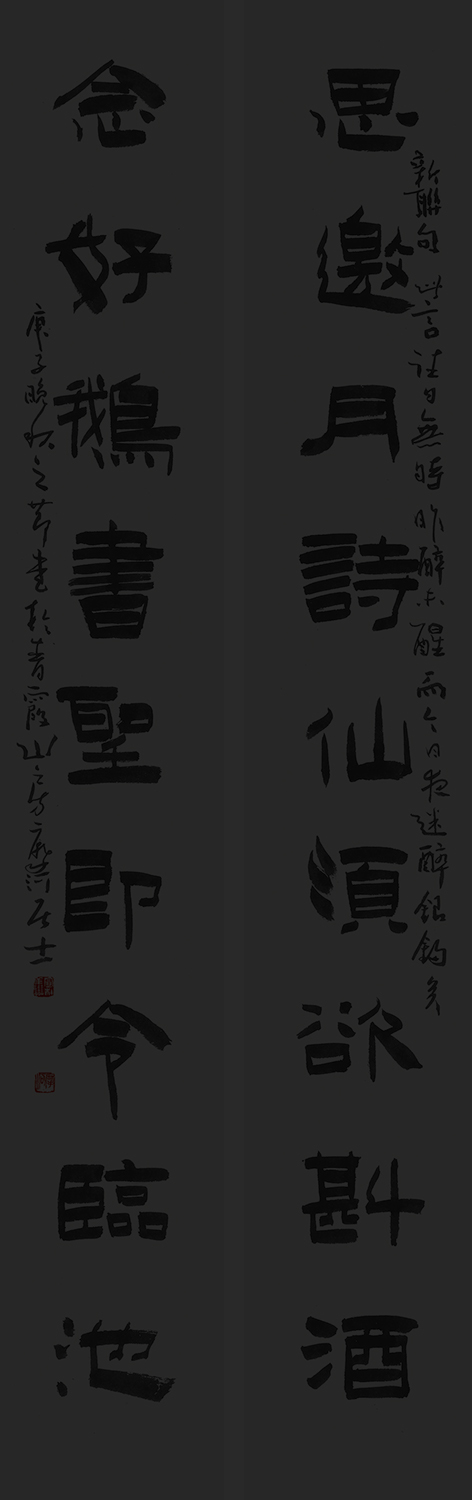 思邀月詩仙須欲斟酒
新聯句 此言謹日無時昨醉未醒而今日夜迷醉銀鉤矣
念好鵝書聖即令臨池
庚子晚秋之節書於青霞山之
居士